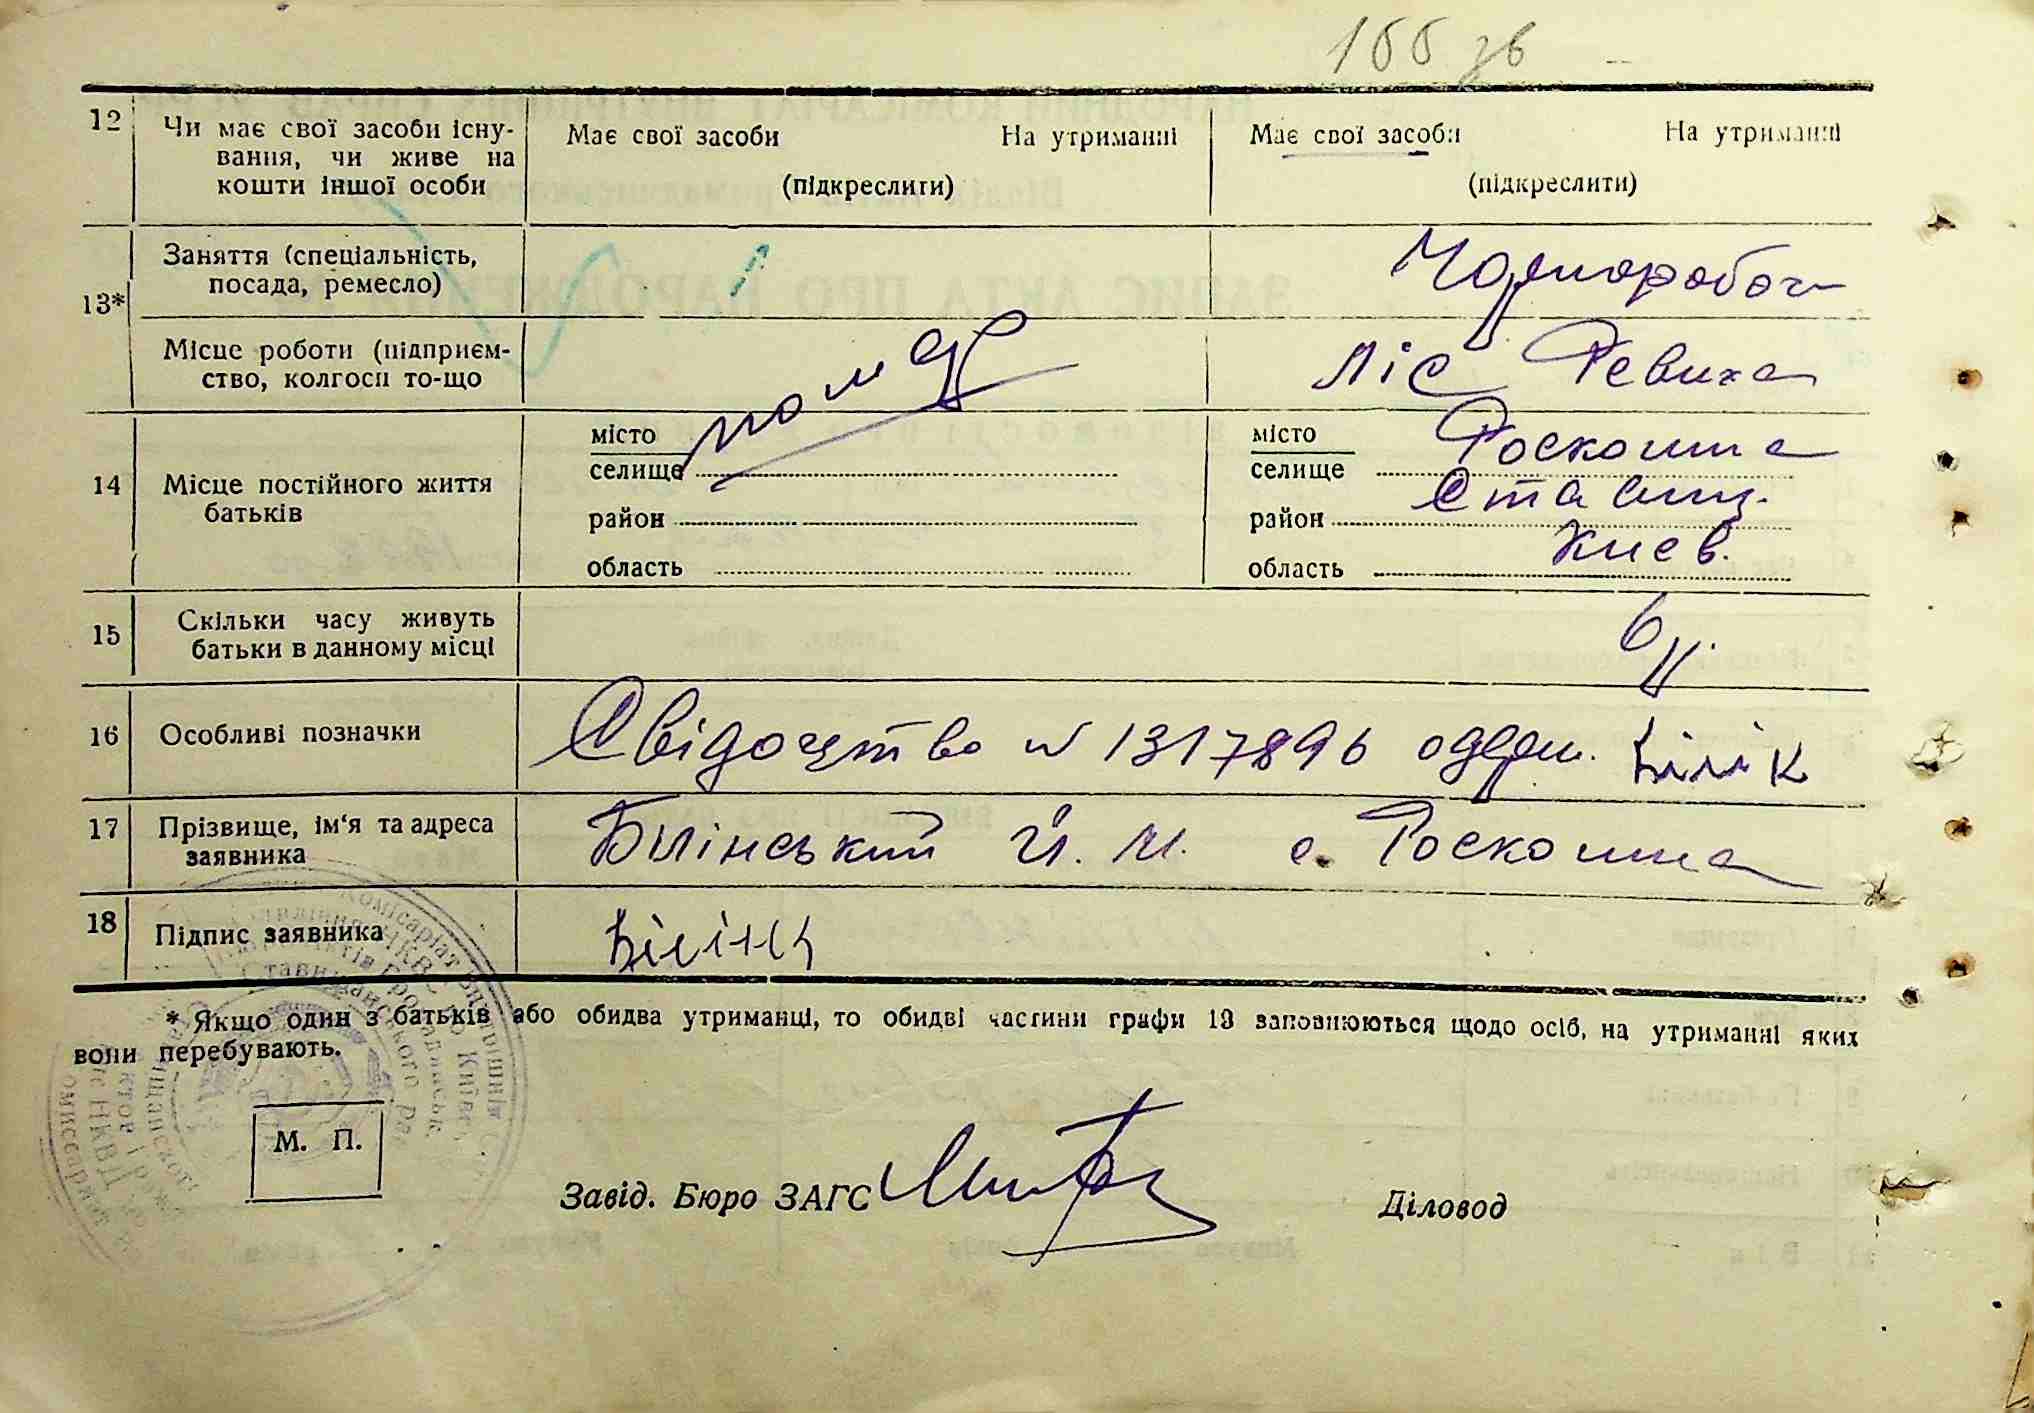 166 зв
12 Чи має свої засоби існу- Має свої засоби На утриманні Має свої засоби На утриманні
вання, чи живе на
кошти іншої особи (підкреслити) (підкреслити)
Заняття (спеціальність, Чорнороб
посада, ремесло)
13*
Місце роботи (підприєм- помер Ліс Ревиха
ство, колгосп то-що
місто місто Роскошна
селище селище
14 Місце постійного життя район район Ставищ.
батьків
область область Києв.
15 Скільки часу живуть
батьки в данному місці
16 Особливі позначки Свідоцтво N 1317896 одерж. Білік
17 Прізвище, ім'я та адреса Білінський Й. М. с. Роскошна
заявника
18 Підпис заявника Білінц
* Якщо один з батьків або обидва утриманці, то обидві частини графи 13 заповнюються щодо осіб, на утриманні яких
вони перебувають.
М. П.
Завід. Бюро ЗАГС Діловод